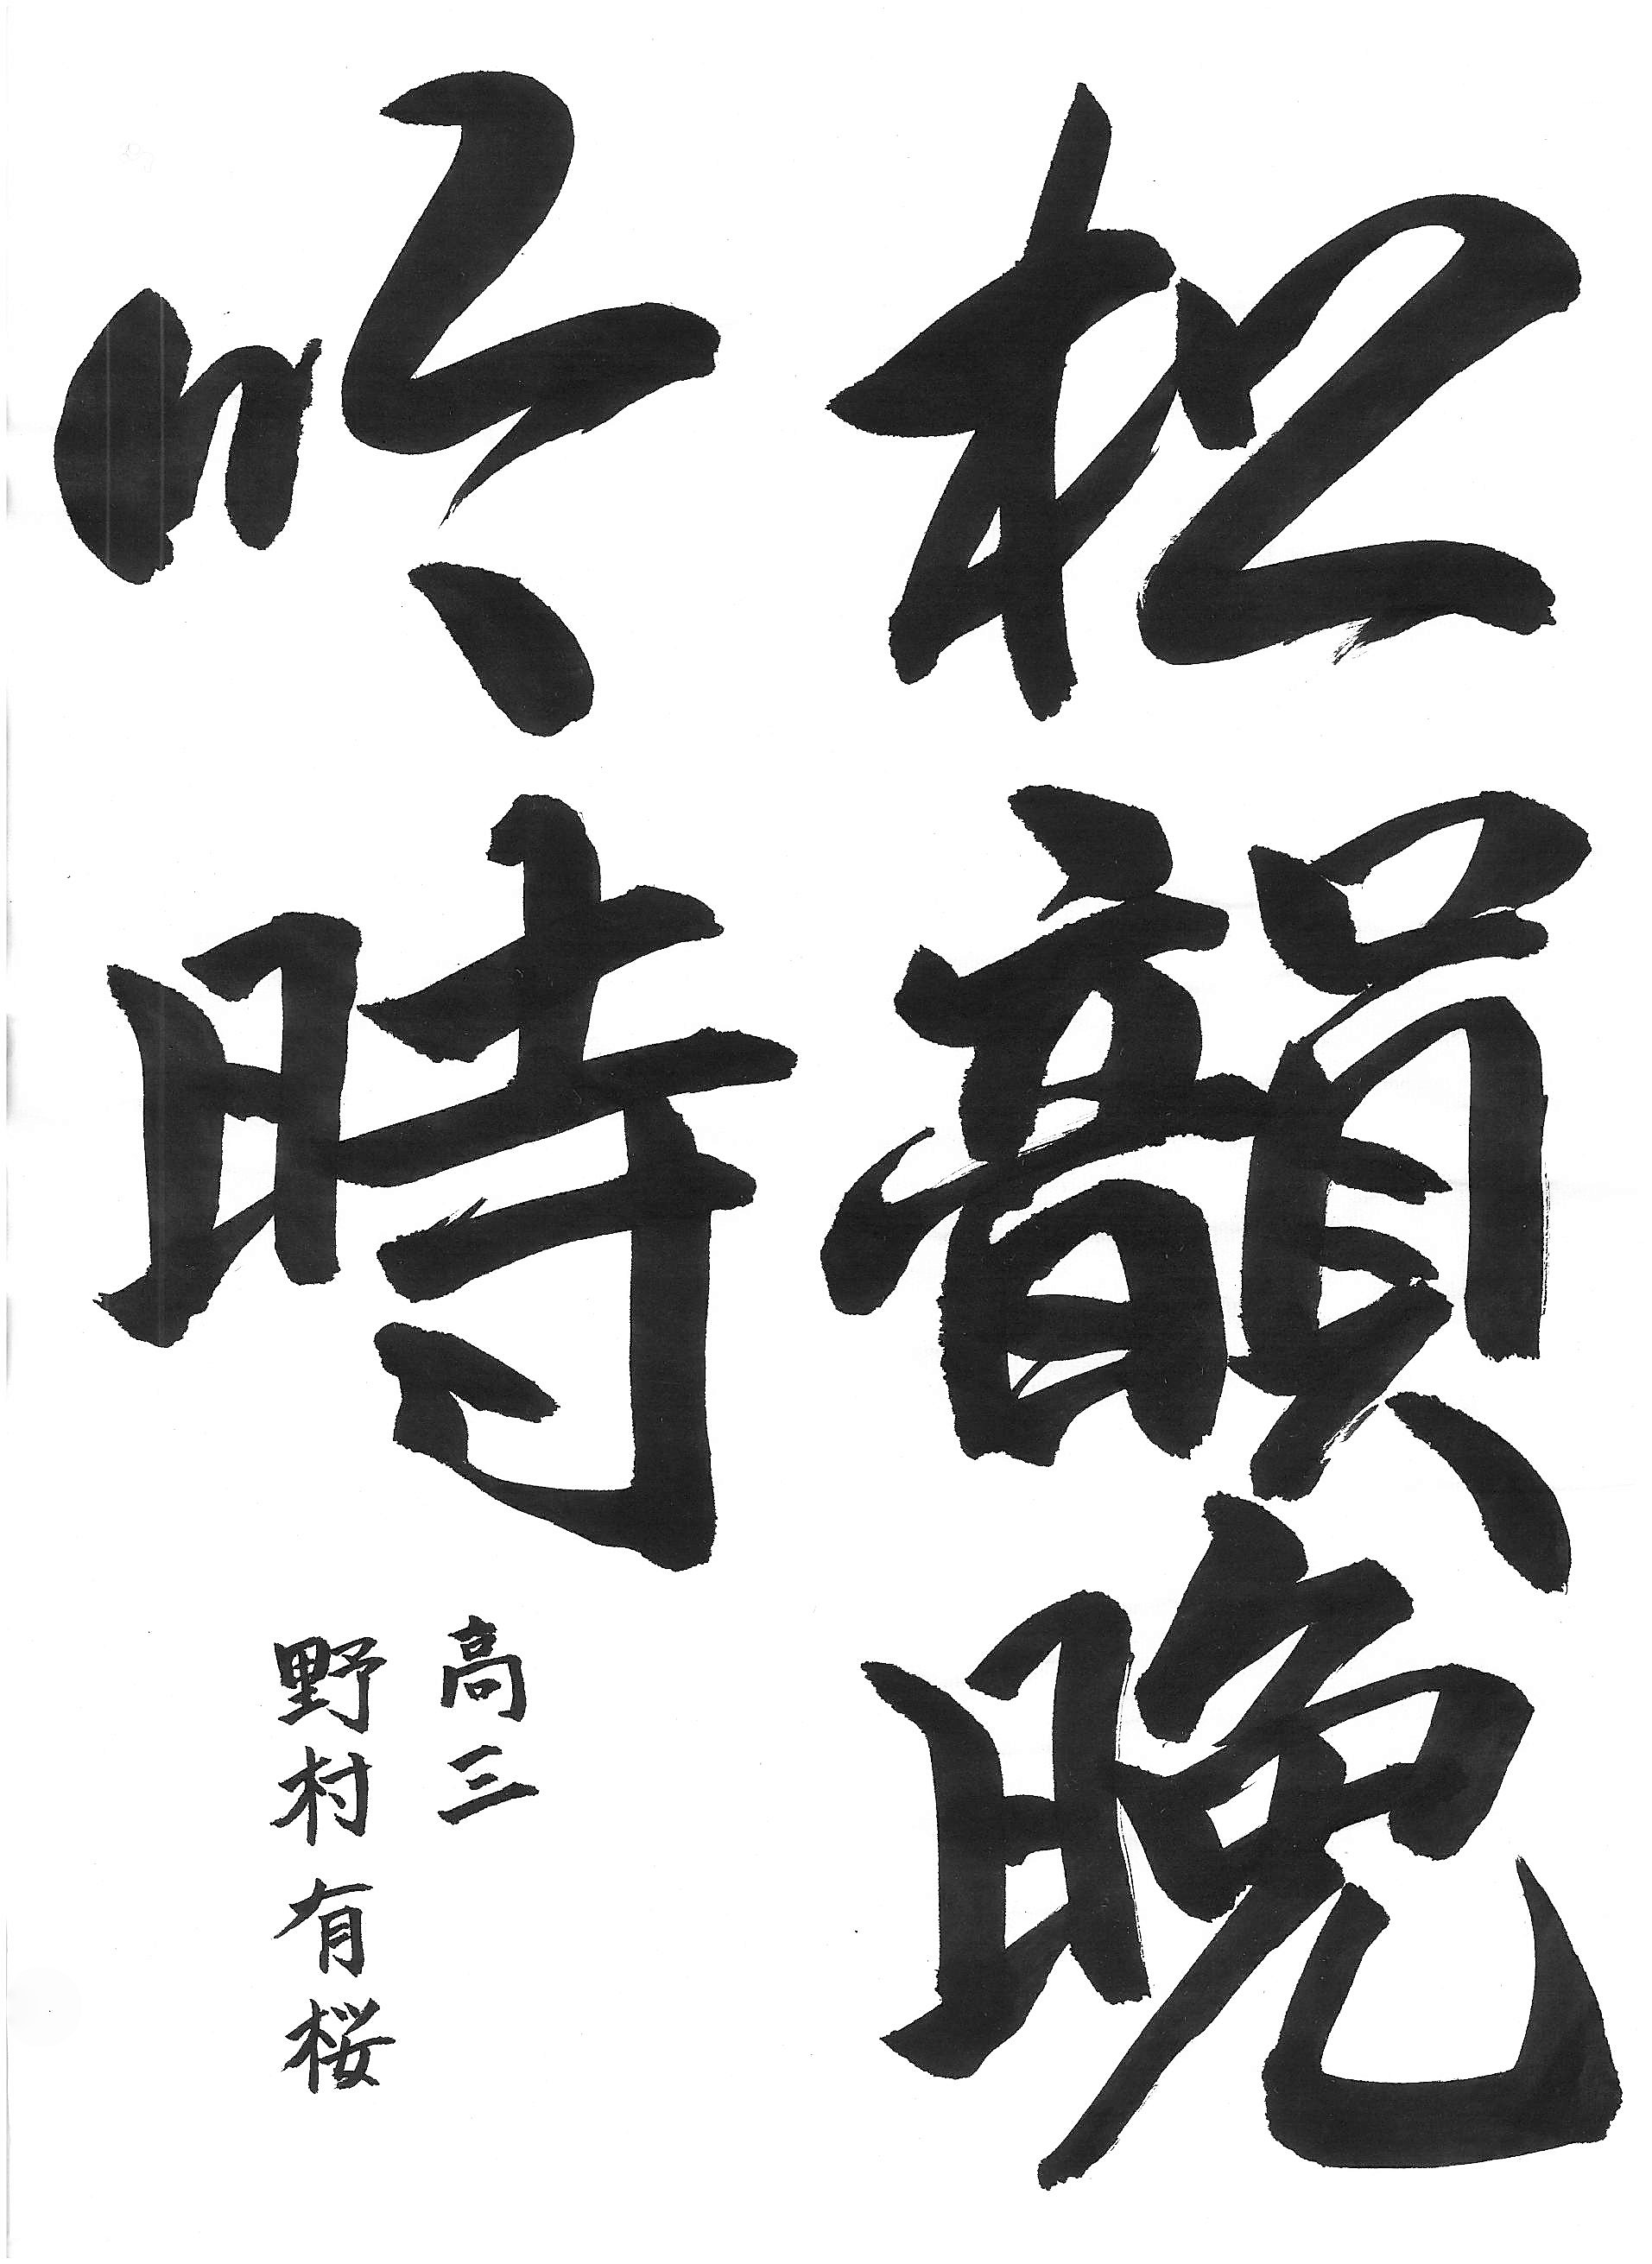 松韻晩
吟時
高三
野村有桜